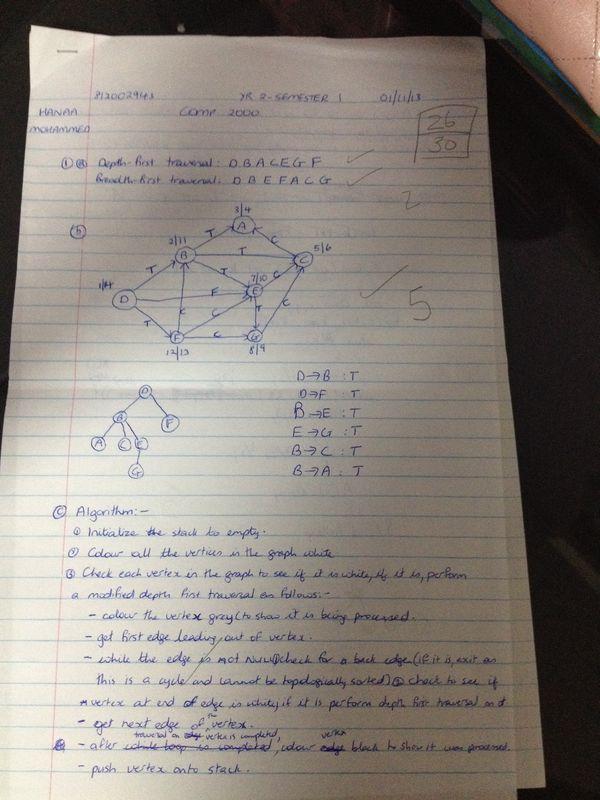 812002943 YR 2-SEMESTER 1 01/11/13
HANAA COMP 2000
MOHAMMED
26
30
① ⓐ Depth-first traversal: D B A C E G F
Breadth-first traversal: D B E F A C G
2
ⓑ
3/4
A
2/11 T C 5/6
B T C
T T 7/10 C
1/14 E
D F
C C T C
T
F C G
12/13 8/9
5
D→B : T
D→F : T
B→E : T
E→G : T
B→C : T
B→A : T
D
B F
A C E
G
ⓒ Algorithm:-
① Initialize the stack to empty.
② Colour all the vertices in the graph white
③ Check each vertex in the graph to see if it is white, if it is, perform
a modified depth first traversal as follows:-
- colour the vertex grey (to show it is being processed.
- get first edge leading out of vertex.
- while the edge is not NULL ① check for a back edge (if it is, exit as
this is a cycle and cannot be topologically sorted) ② check to see if
vertex at end of edge is white, if it is perform depth first traversal on it
- get next edge of the vertex.
traversal on edge vertex is completed, vertex
- after while loop is completed, colour edge black to show it was processed.
- push vertex onto stack.